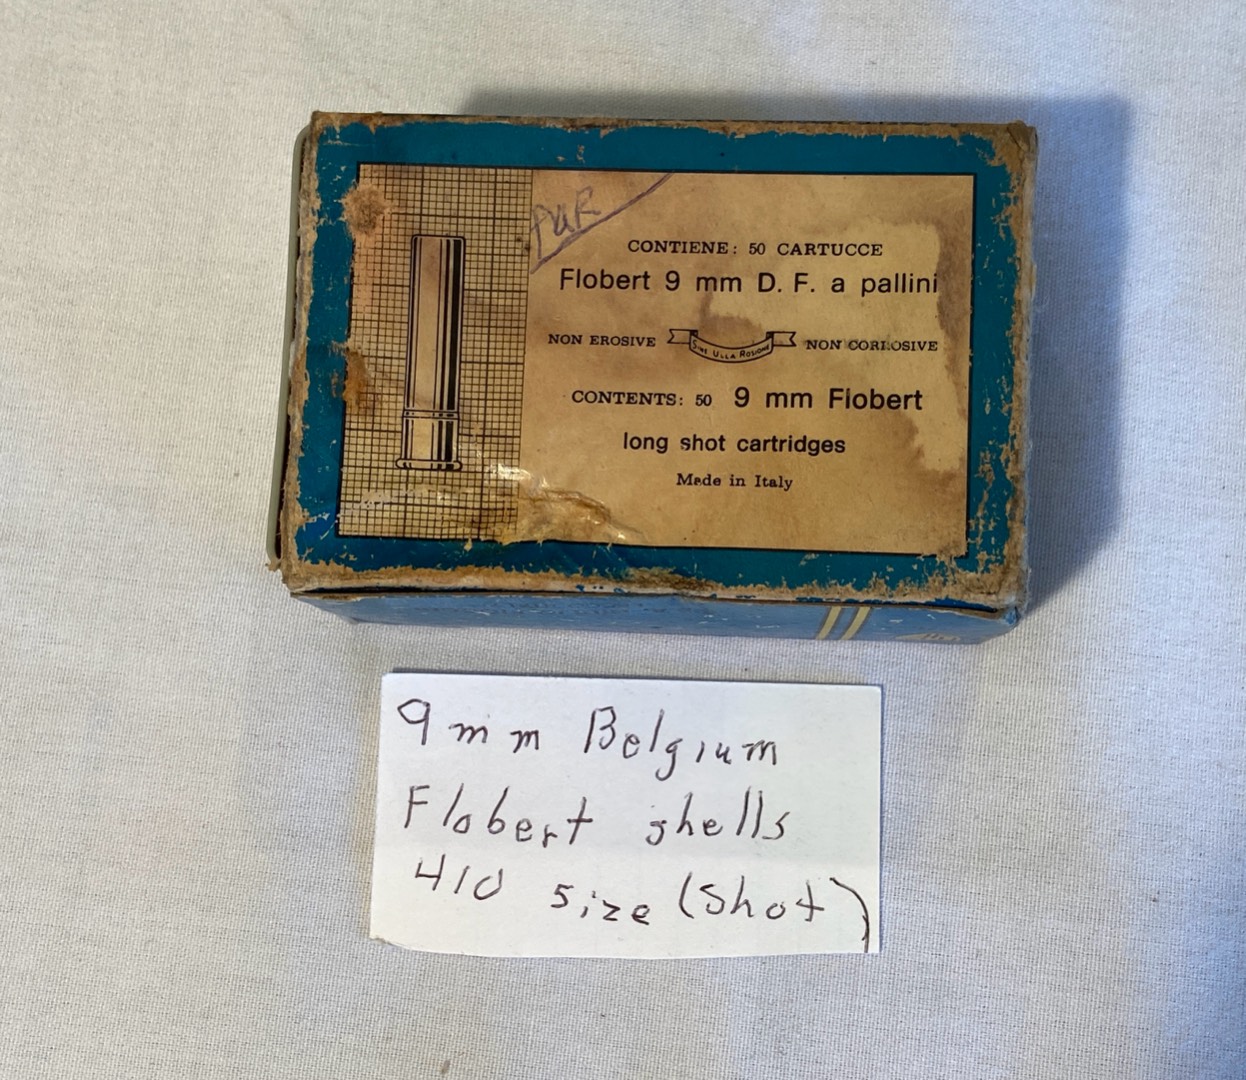 CONTIENE: 50 CARTUCCE
Flobert 9 mm D. F. a pallini
NON EROSIVE
SINE ULLA ROSIONE
NON CORROSIVE
CONTENTS: 50 9 mm Flobert
long shot cartridges
Made in Italy
9mm Belgium
Flobert shells
410 size (shot)